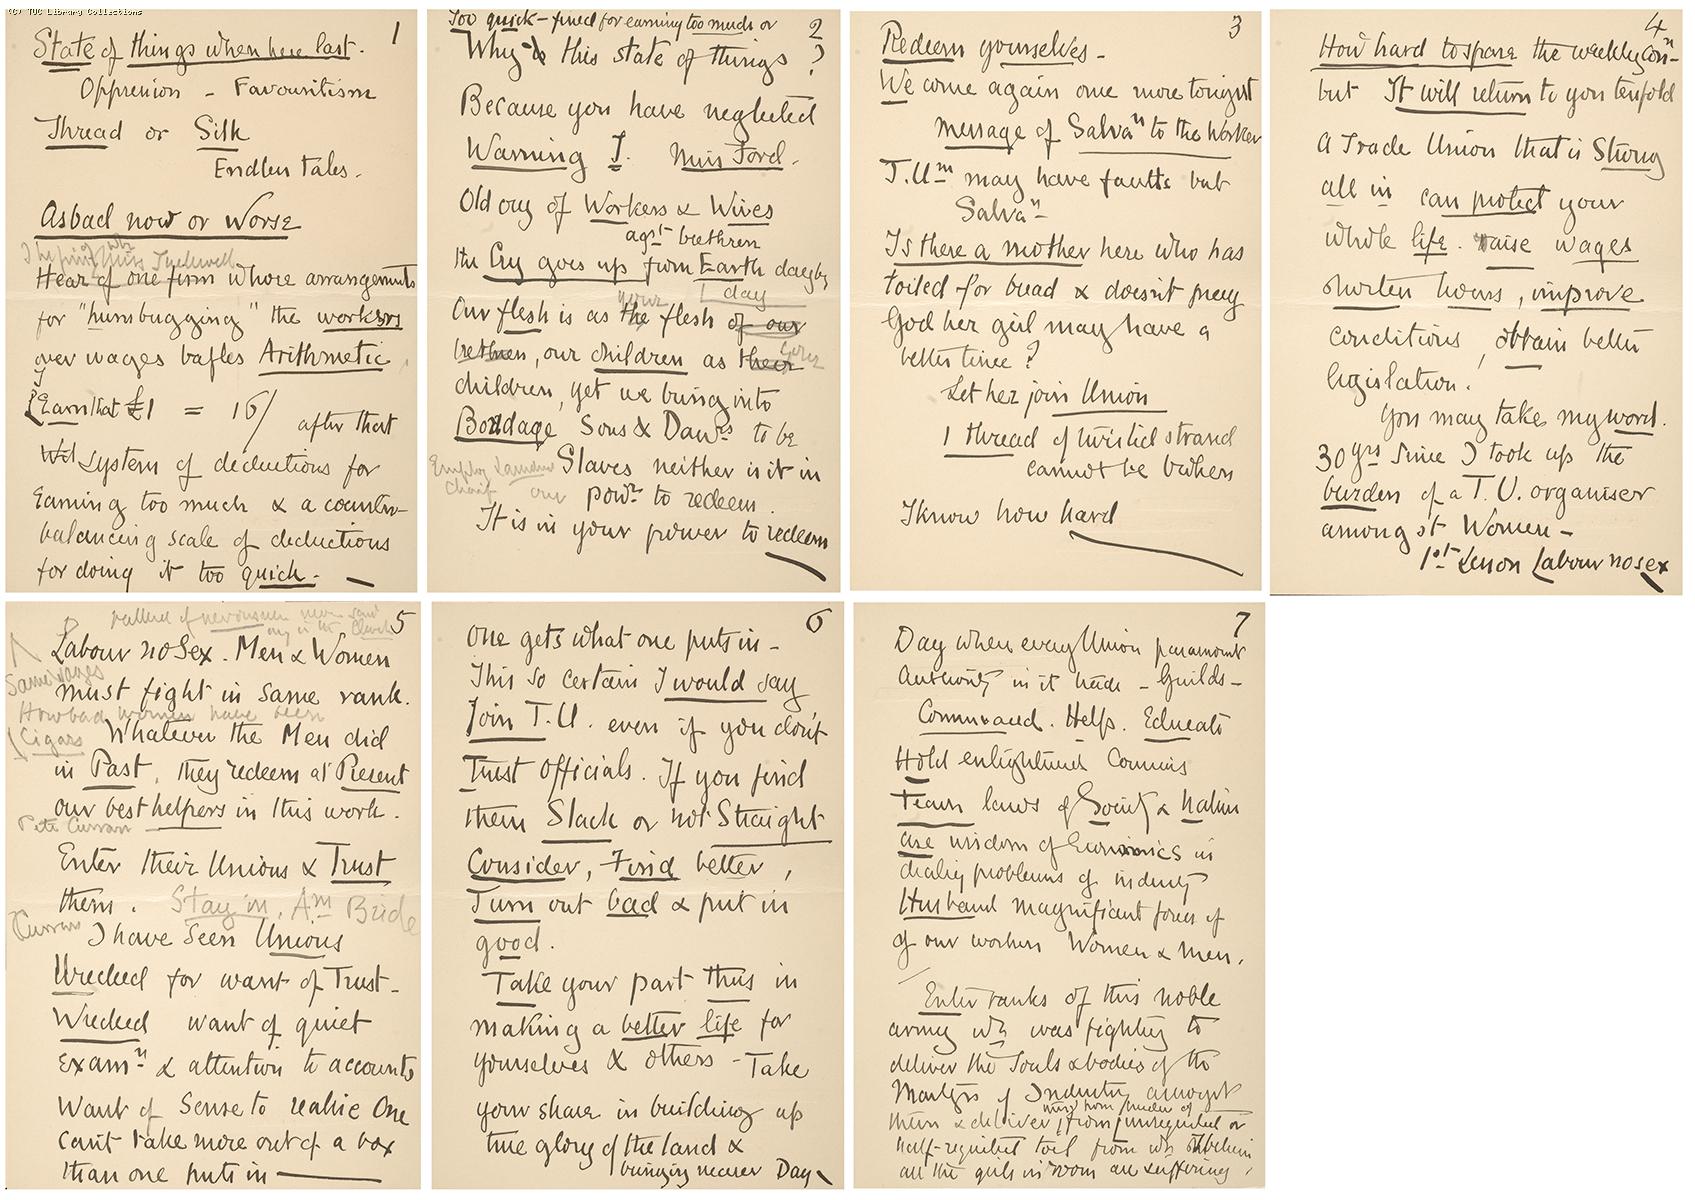 (C) TUC Library Collections
1
State of things when here last.
Oppression - Favouritism
Thread or Silk
Endless tales.
As bad now or Worse
Hear of one firm whose arrangements
for "humbugging" the workers
over wages bafles Arithmetic
Earn that £1 = 16/ after that
System of deductions for
Earning too much & a counter-
balancing scale of deductions
for doing it too quick. -
Too quick - fined for earning too much or
2
Why is this state of things?
Because you have neglected
Warning I. Miss Ford.
Old cry of Workers & Wives
agst brethren
the Cry goes up from Earth day by
day
Our flesh is as the flesh of our
your
brethren, our children as their
your
children, yet we bring into
Bondage Sons & Daurs to be
Slaves neither is it in
our powr to redeem.
It is in your power to redeem
3
Redeem yourselves -
We come again one more tonight
message of Salvan to the Worker
T.Um may have faults but
Salvan -
Is there a mother here who has
toiled for bread & doesn't pray
God her girl may have a
better time?
Let her join Union
1 thread of twisted strand
cannot be broken
I know how hard
4
How hard to spare the weekly con-
but It will return to you tenfold
A Trade Union that is Strong
all in can protect your
whole life. raise wages
shorten hours, improve
conditions, obtain better
legislation.
You may take my word.
30 yrs since I took up the
burden of a T.U. organiser
amongst Women -
1st Lesson Labour no sex
5
Labour no Sex. Men & Women
Same wages
must fight in same rank.
How bad women have been
Cigars Whatever the Men did
in Past, they redeem at Present
our best helpers in this work.
Pete Curran
Enter their Unions & Trust
them. Stay in. Am Bride
Curran I have seen Unions
Wrecked for want of Trust -
Wrecked want of quiet
Examn & attention to accounts
Want of Sense to realise One
can't take more out of a box
than one puts in -
6
One gets what one puts in -
This so certain I would say
Join T.U. even if you don't
Trust Officials. If you find
them Slack or not Straight
Consider, Find better,
Turn out bad & put in
good.
Take your part thus in
making a better life for
yourselves & others - Take
your share in building up
true glory of the land &
bringing nearer Day
7
Day when every Union paramount
Authority in its trade - Guilds -
Command. Help. Educate
Hold enlightened
Learn laws of Society & Nation
use wisdom of Economics in
dealing problems of industry
Husband magnificent forces of
of our workers Women & Men.
Enter ranks of this noble
army wh was fighting to
deliver the Souls & bodies of the
Martyrs of Industry amongst
them & deliver from unrequited or
half-requited toil from wh
all the girls in room are suffering